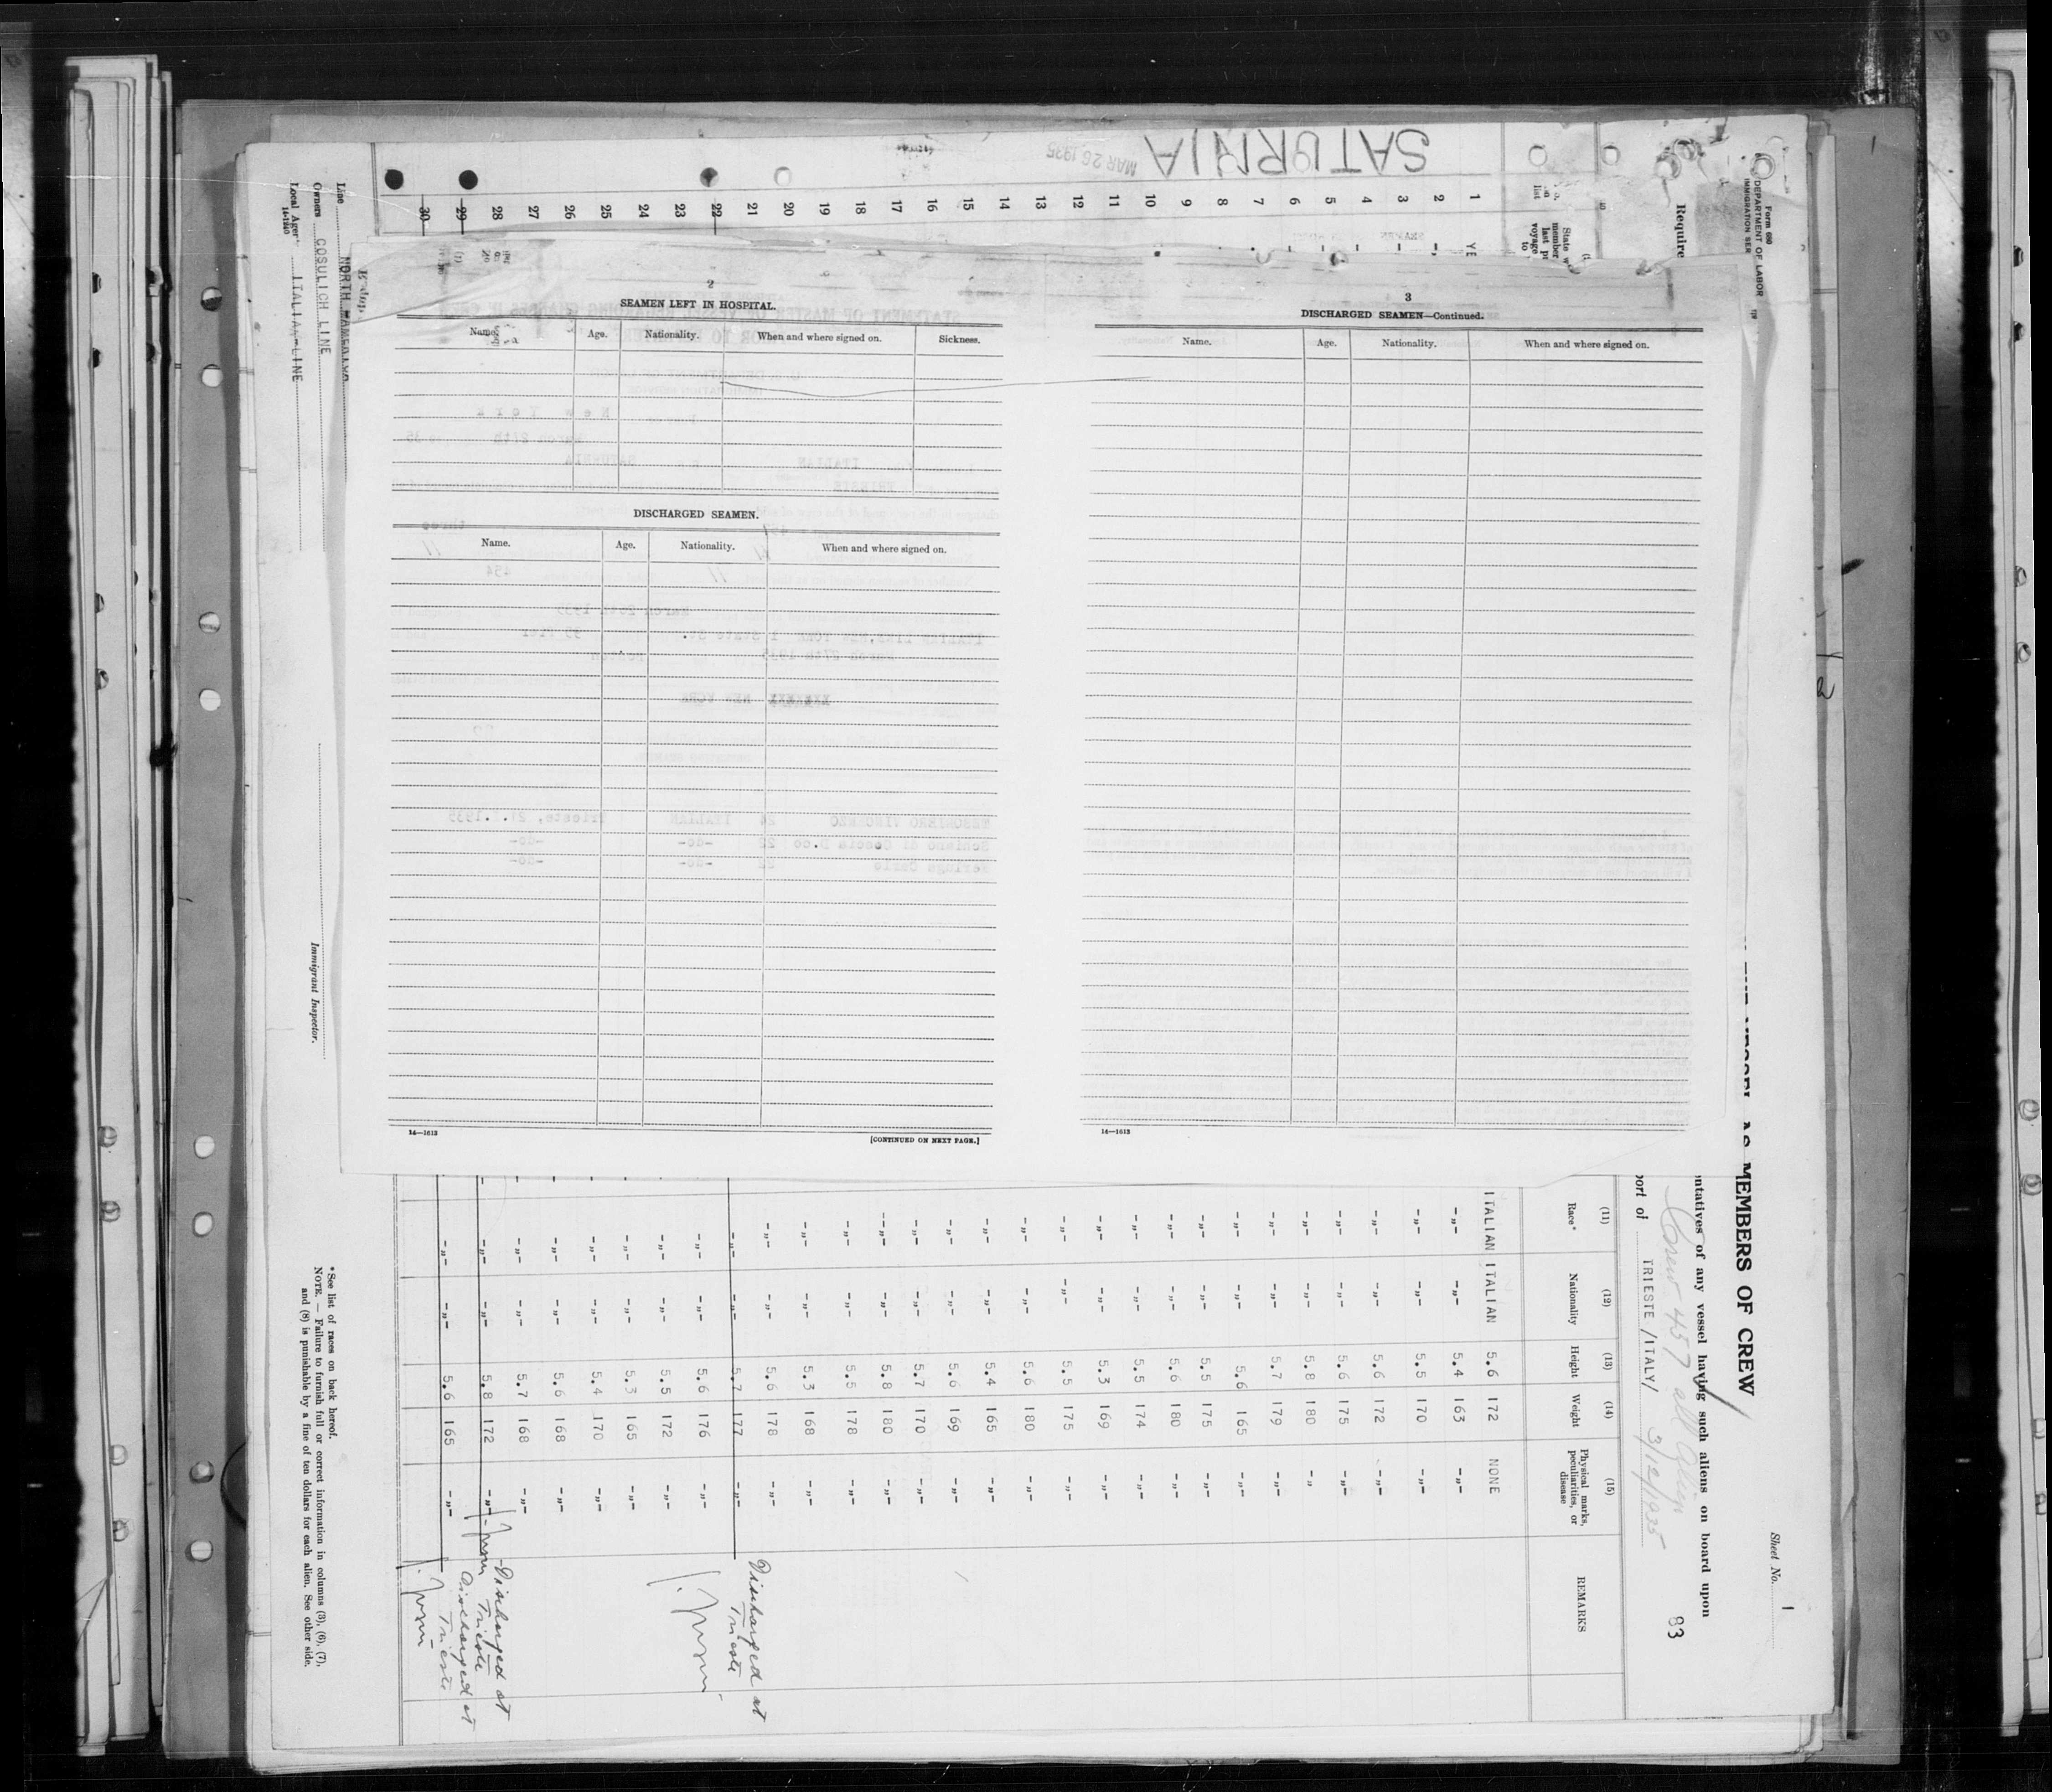 2
SEAMEN LEFT IN HOSPITAL.
Name. Age. Nationality. When and where signed on. Sickness.
DISCHARGED SEAMEN.
Name. Age. Nationality. When and where signed on.
14—1613
[CONTINUED ON NEXT PAGE.]
3
DISCHARGED SEAMEN—Continued.
Name. Age. Nationality. When and where signed on.
14—1613
SATURNIA
MAR 26 1935
Form 680
DEPARTMENT OF LABOR
IMMIGRATION SER
Require
AS MEMBERS OF CREW
Sheet No. 1
ntatives of any vessel having such aliens on board upon
Crew 457 all
83
port of TRIESTE /ITALY/ 3/12/1935
(11) (12) (13) (14) (15)
Race* Nationality Height Weight Physical marks, peculiarities, or disease REMARKS
1 YE ITALIAN ITALIAN 5.6 172 NONE
2 -„- -„- 5.4 163 -„-
3 -„- -„- 5.5 170 -„-
4 -„- -„- 5.6 172 -„-
5 -„- -„- 5.6 175 -„-
6 -„- -„- 5.8 180 -„
7 -„- -„- 5.7 179 -„-
8 -„- -„- 5.6 165 -„-
9 -„- -„- 5.5 175 -„-
10 -„- -„- 5.6 180 -„-
11 -„- -„- 5.5 174 -„-
12 -„- -„- 5.3 169 -„-
13 -„- -„- 5.5 175 -„-
14 -„- -„- 5.6 180 -„-
15 -„- -„- 5.4 165 -„-
16 -„- -„- 5.6 169 -„-
17 -„- -„- 5.7 170 -„-
18 -„- -„- 5.8 180 -„-
19 -„- -„- 5.5 178 -„-
20 -„- -„- 5.3 168 -„-
21 -„- -„- 5.6 178 -„-
22 -„- -„- 5.7 177 -„- Discharged at Trieste
23 -„- -„- 5.6 176 -„-
24 -„- -„- 5.5 172 -„-
25 -„- -„- 5.3 165 -„-
26 -„- -„- 5.4 170 -„-
27 -„- -„- 5.6 168 -„-
28 -„- -„- 5.7 168 -„-
29 -„- -„- 5.8 172 -„- Discharged at Trieste
30 -„- -„- 5.6 165 -„- Discharged at Trieste
Line NORTH
Owners COSULICH LINE
Local Agent ITALIA-LINE
14-1240
Immigrant Inspector.
*See list of races on back hereof.
NOTE. — Failure to furnish full or correct information in columns (3), (6), (7),
and (8) is punishable by a fine of ten dollars for each alien. See other side.